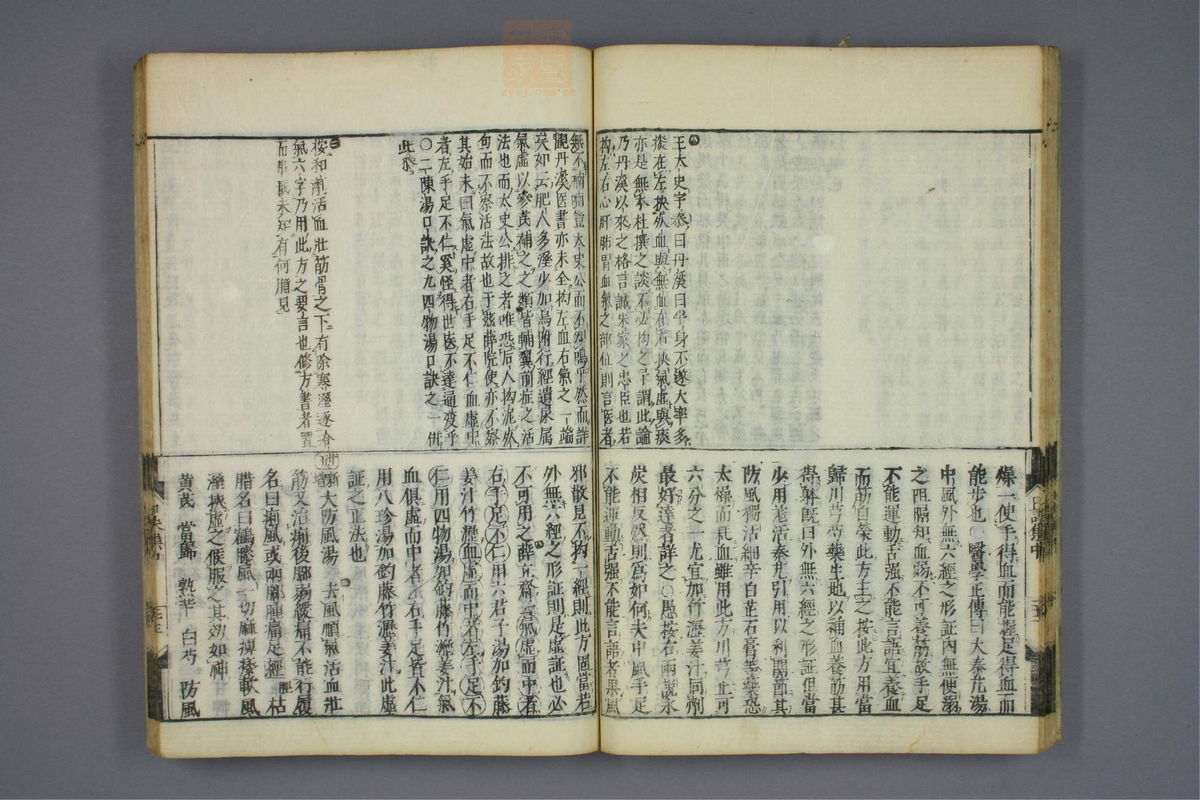 王太史字泰曰丹溪曰半身不遂大率多
痰在左挾死血與無血在右挾氣虛與痰
亦是無本杜撰之談不必拘之予謂此論
乃丹溪以來之格言誠朱家之忠臣也若
拘左右心肝肺胃血氣之部位則言医者
燥一使手得血而能握足得血而
能步也○醫學正傳曰大秦艽湯
中風外無六經之形証內無便溺
之阻隔知血弱不可養筋故手足
不能運動舌强不能言語宜養血
而筋自榮此方主之按此方用當
歸川芎芍藥生地以補血養筋甚
得躰既曰外無六經之形証但當
少用羌活秦艽引用以利關節其
防風獨活細辛白芷石膏等藥恐
太燥而耗血雖用此方川芎止可
六分之一尤宜加竹瀝姜汁同劑
最好達者詳之○愚按右兩說氷
炭相反然則為如何夫中風手足
不能運動舌强不能言語者果風
觀丹溪医書亦未全拘左血右氣之一端
矣如云肥人多溼少加烏附行經遺尿属
氣虛以參芪補之之類皆輔翼前症之活
法也而太史公排之者唯恐后人拘泥於
句而不察活法故也于玆薛院使亦不察
其始末曰氣虛中者右手足不仁血虛中
者左手足不仁奚怪得世医不達通变乎
○二陳湯口訣之九四物湯口訣之一併
此參
按和前活血壯筋骨之下有除寒溼逐冷
氣六字乃用此方之要言也修方書者置
而弗載未知有何臆見
邪散見不拘一經則此方固當若
外無六經之形証則是虛証也必
不可用之薛立齋曰氣虛而中者
右手足不仁用六君子湯加鈎藤
姜汁竹瀝血虛而中者左手足不
仁用四物湯加鈎藤竹瀝姜汁氣
血俱虛而中者左右手足皆不仁
用八珍湯加鈎藤竹瀝姜汁此虛
証之正法也
新增大防風湯 去風順氣活血壯
筋又治痢後脚弱緩痛不能行履
名曰痢風或兩膝腫痛足脛枯
腊名曰鶴膝風一切麻痺痿軟風
溼挾虛之候服之其効如神
黄芪 當歸 熟芐 白芍 防風